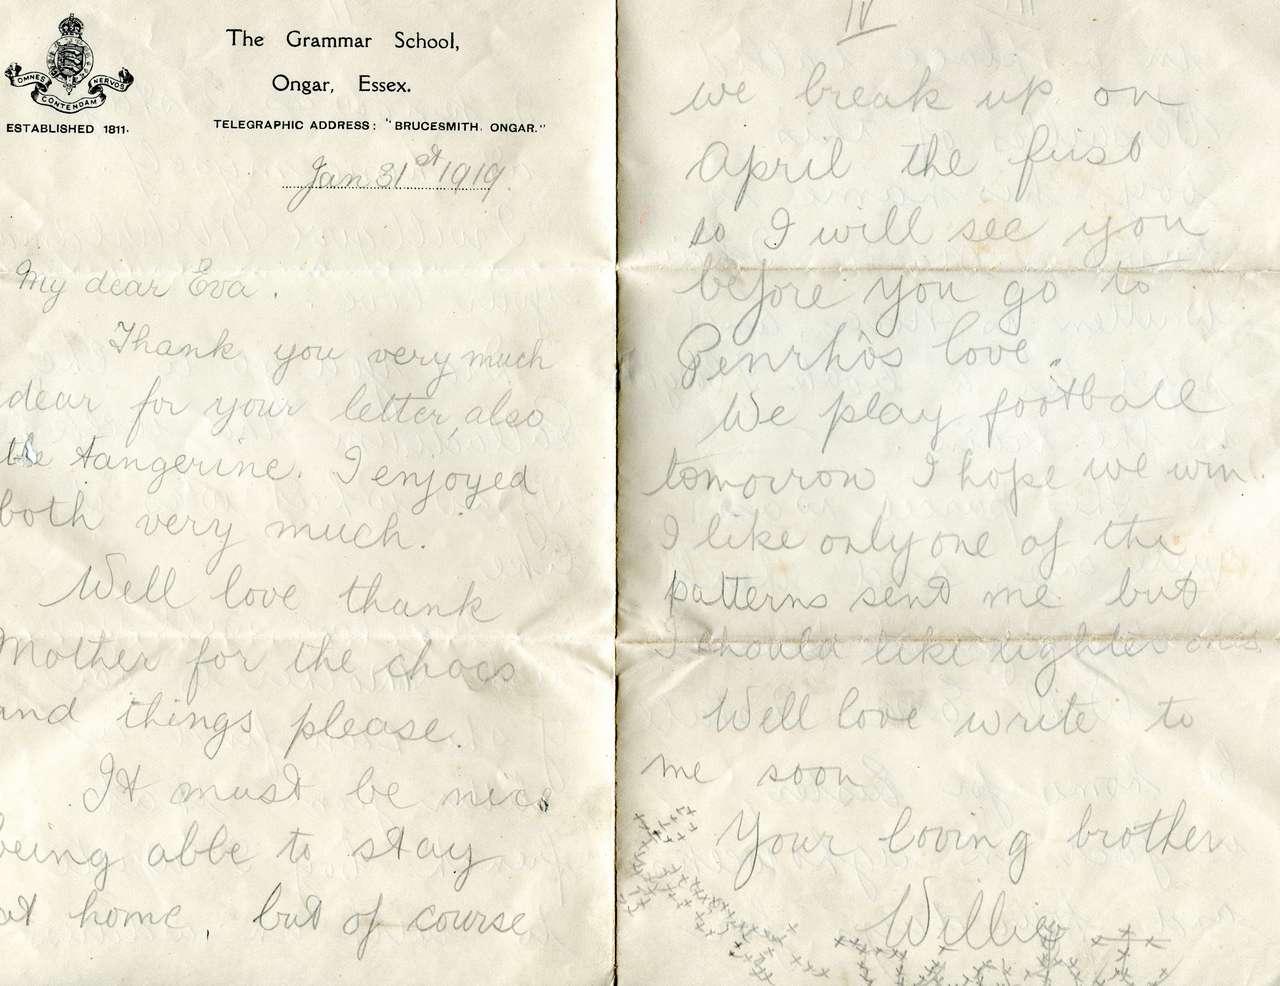 The Grammar School,
Ongar, Essex.
OMNES NERVOS
CONTENDAM
ESTABLISHED 1811.
TELEGRAPHIC ADDRESS: "BRUCESMITH, ONGAR."
Jan 31st 1919.
My dear Eva.
Thank you very much
dear for your letter, also
the tangerine. I enjoyed
both very much.
Well love thank
Mother for the chocs
and things please.
It must be nice
being abbe to stay
at home, but of course
IV
we break up on
April the first
so I will see you
before you go to
Penrhôs love.
We play football
tomorrow I hope we win.
I like only one of the
patterns sent me but
I should like lighter ones
Well love write to
me soon
Your loving brother
Willie